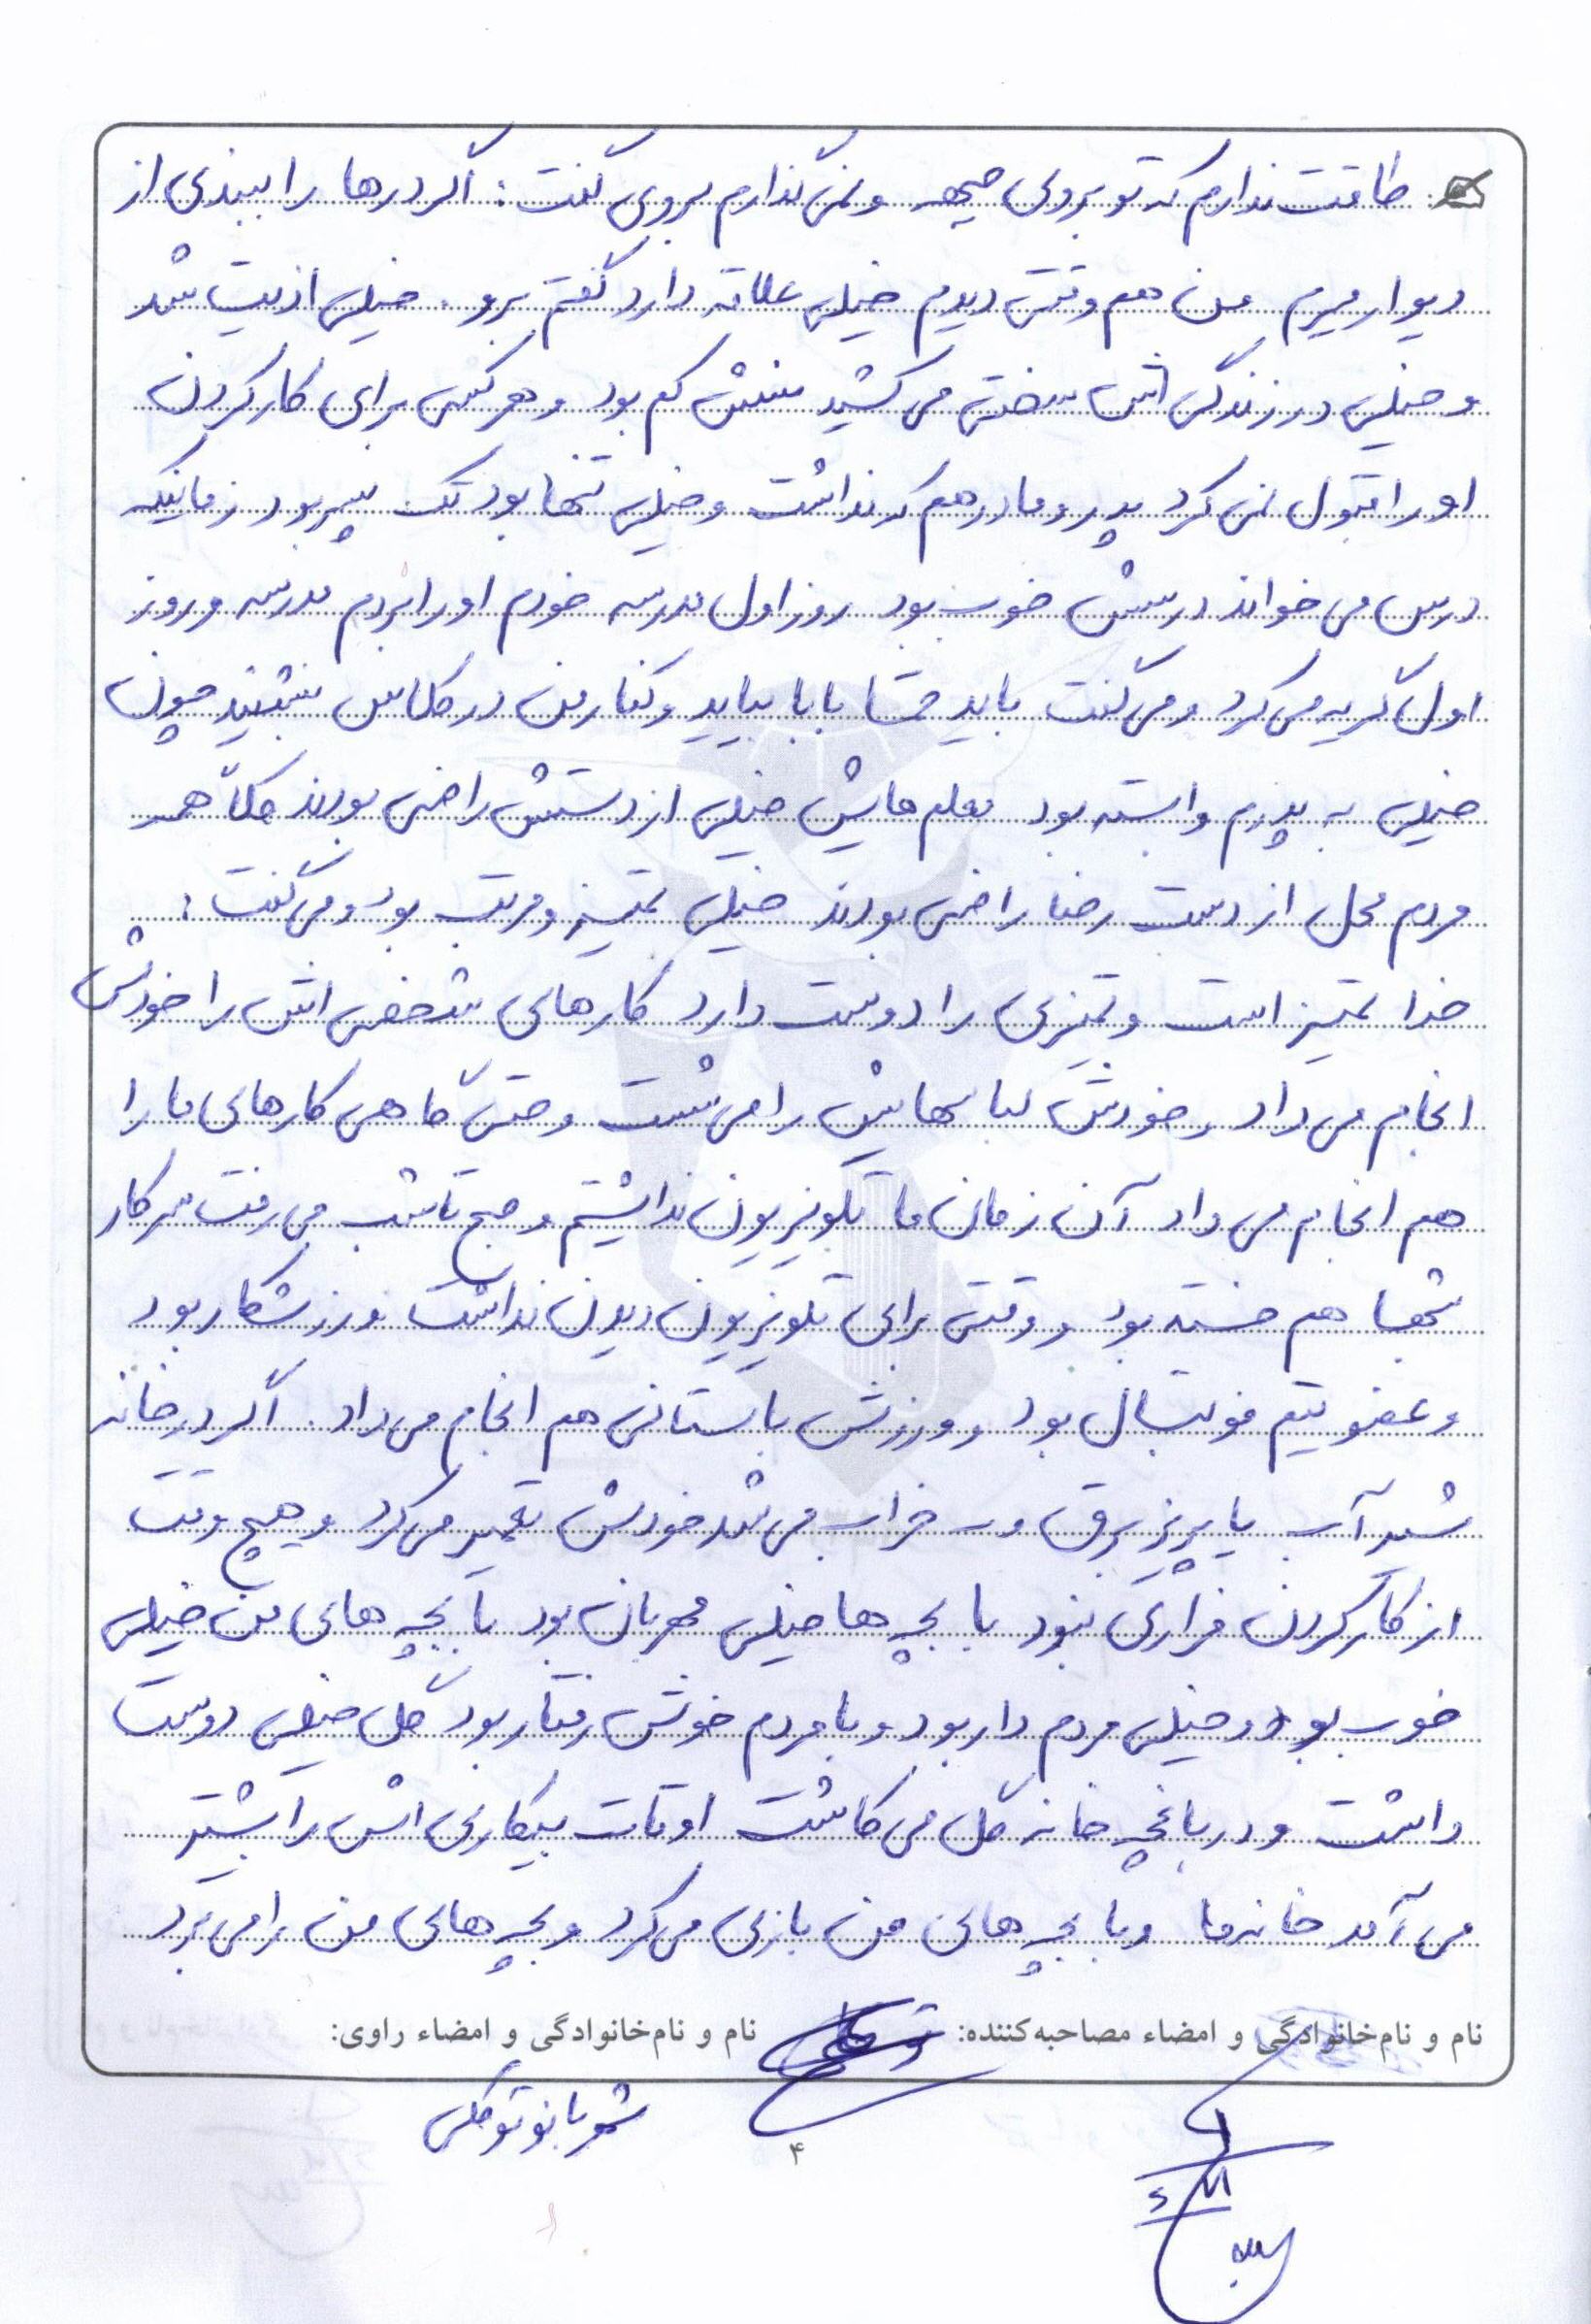 طاقت ندارم که تو بروی جبهه و نمی گذارم بروی گفت: اگر درها را ببندی از
دیوار میرم من هم وقتی دیدم خیلی علاقه دارد گفتم برو. خیلی اذیت شد
و خیلی در زندگی اش سختی می کشید سنش کم بود و هر کسی برای کار کردن
او را قبول نمی کرد پدر و مادر هم که نداشت و خیلی تنها بود تک پسر بود زمانیکه
درس می خواند درسش خوب بود روز اول مدرسه خودم او را بردم مدرسه و روز
اول گریه می کرد و می گفت باید حتما بابا بیاید و کنار من در کلاس بنشیند چون
خیلی به پدرم وابسته بود معلم هایش خیلی از دستش راضی بودند کلاً همه
مردم محل از دست رضا راضی بودند خیلی تمیز و مرتب بود و می گفت:
خدا تمیز است و تمیزی را دوست دارد کارهای شخصی اش را خودش
انجام می داد و خودش لباسهایش را می شست و حتی گاهی کارهای ما را
هم انجام می داد آن زمان ما تلویزیون نداشتیم و صبح تا شب می رفت سر کار
شبها هم خسته بود و وقتی برای تلویزیون دیدن نداشت ورزشکار بود
و عضو تیم فوتبال بود و ورزش باستانی هم انجام می داد. اگر در خانه
شیر آب یا پریز برق و.. خراب می شد خودش تعمیر می کرد و هیچ وقت
از کار کردن فراری نبود با بچه ها خیلی مهربان بود با بچه های من خیلی
خوب بود و خیلی مردم دار بود و با مردم خوش رفتار بود گل خیلی دوست
داشت و در باغچه خانه گل می کاشت اوقات بیکاری اش را بیشتر
می آمد خانه ما و با بچه های من بازی می کرد و بچه های من را می برد
نام و نام‌خانوادگی و امضاء مصاحبه‌کننده: نام و نام‌خانوادگی و امضاء راوی:
شهربانو توکلی
۴